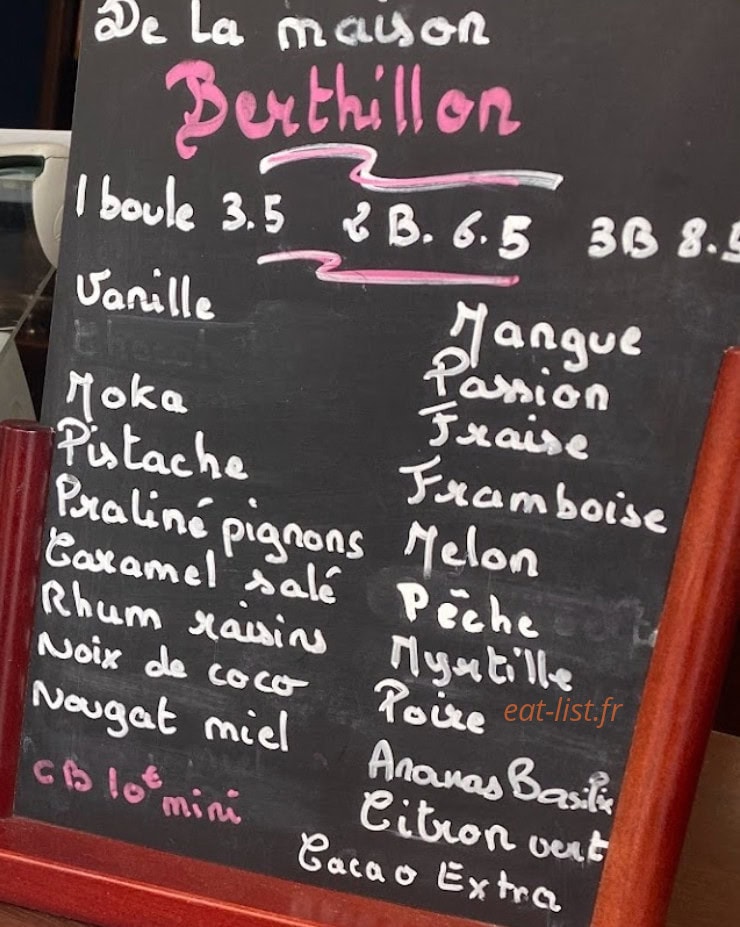 De La maison
Berthillon
1 boule 3.5 2 B. 6.5 3B 8.5
Vanille
Moka
Pistache
Praliné pignons
Caramel salé
Rhum raisins
Noix de coco
Nougat miel
CB 10€ mini
Mangue
Passion
Fraise
Framboise
Melon
Pêche
Myrtille
Poire
eat-list.fr
Ananas Basilic
Citron vert
Cacao Extra